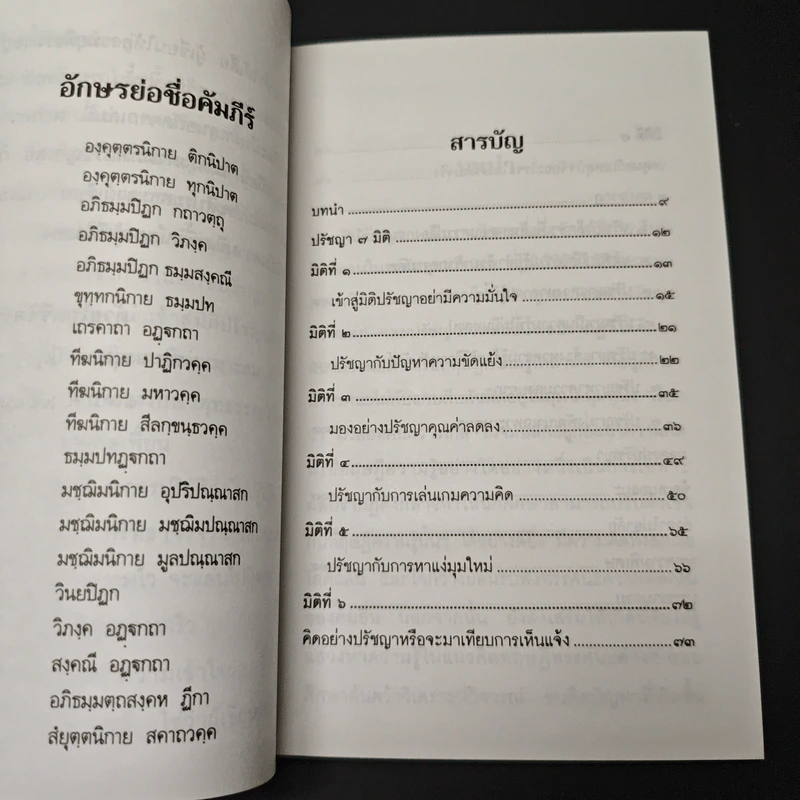 อักษรย่อชื่อคัมภีร์
องฺคุตฺตรนิกาย ติกนิปาต
องฺคุตฺตรนิกาย ทุกนิปาต
อภิธมฺมปิฏก กถาวตฺถุ
อภิธมฺมปิฏก วิภงฺค
อภิธมฺมปิฏก ธมฺมสงฺคณี
ขุทฺทกนิกาย ธมฺมปท
เถรคาถา อฏฺฐกถา
ทีฆนิกาย ปาฏิกวคฺค
ทีฆนิกาย มหาวคฺค
ทีฆนิกาย สีลกฺขนฺธวคฺค
ธมฺมปทฏฺฐกถา
มชฺฌิมนิกาย อุปริปณฺณาสก
มชฺฌิมนิกาย มชฺฌิมปณฺณาสก
มชฺฌิมนิกาย มูลปณฺณาสก
วินยปิฏก
วิภงฺค อฏฺฐกถา
สงฺคณี อฏฺฐกถา
อภิธมฺมตฺถสงฺคห ฏีกา
สํยุตฺตนิกาย สคาถวคฺค
สารบัญ
บทนำ ๙
ปรัชญา ๗ มิติ ๑๒
มิติที่ ๑ ๑๓
เข้าสู่มิติปรัชญาอย่ามีความมั่นใจ ๑๕
มิติที่ ๒ ๒๑
ปรัชญากับปัญหาความขัดแย้ง ๒๒
มิติที่ ๓ ๓๕
มองอย่างปรัชญาคุณค่าลดลง ๓๖
มิติที่ ๔ ๔๙
ปรัชญากับการเล่นเกมความคิด ๕๐
มิติที่ ๕ ๖๕
ปรัชญากับการหาแง่มุมใหม่ ๖๖
มิติที่ ๖ ๗๒
คิดอย่างปรัชญาหรือจะมาเทียบการเห็นแจ้ง ๗๓